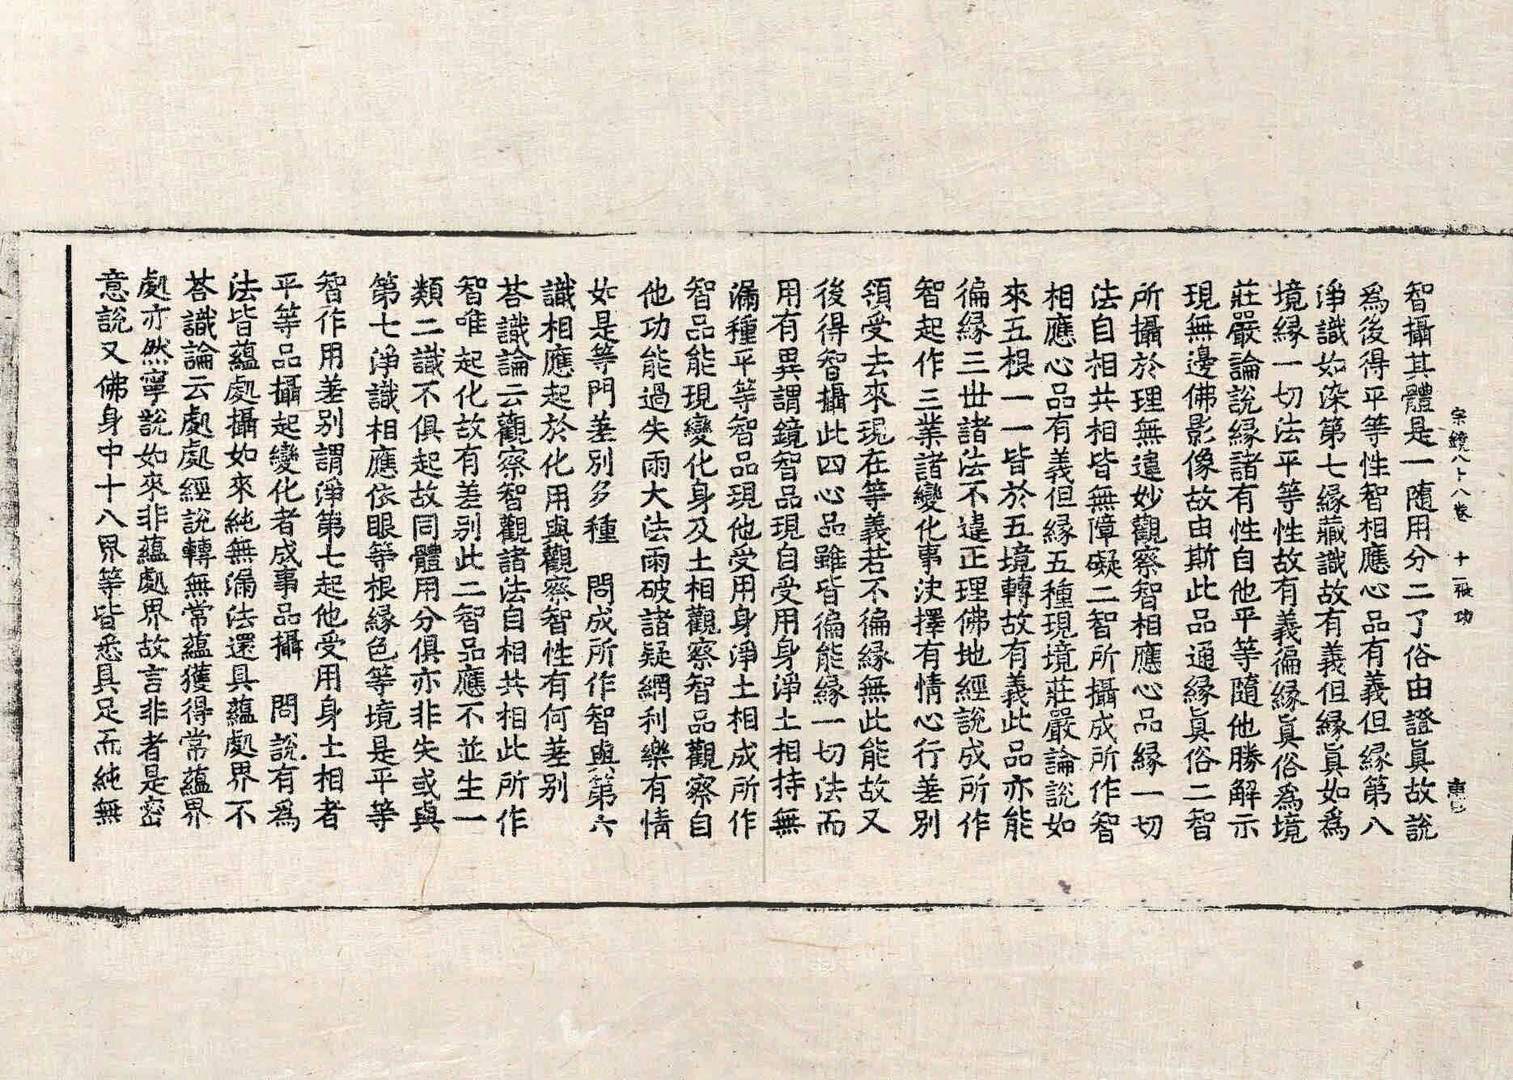 宗鏡八十八卷 十一張 功
智攝其體是一隨用分二了俗由證眞故說
爲後得平等性智相應心品有義但緣第八
淨識如染第七緣藏識故有義但緣眞如爲
境緣一切法平等性故有義徧緣眞俗爲境
莊嚴論說緣諸有性自他平等隨他勝解示
現無邊佛影像故由斯此品通緣眞俗二智
所攝於理無違妙觀察智相應心品緣一切
法自相共相皆無障礙二智所攝成所作智
相應心品有義但緣五種現境莊嚴論說如
來五根一一皆於五境轉故有義此品亦能
徧緣三世諸法不違正理佛地經說成所作
智起作三業諸變化事決擇有情心行差別
領受去來現在等義若不徧緣無此能故又
後得智攝此四心品雖皆徧能緣一切法而
用有異謂鏡智品現自受用身淨土相持無
漏種平等智品現他受用身淨土相成所作
智品能現變化身及土相觀察智品觀察自
他功能過失雨大法雨破諸疑網利樂有情
如是等門差別多種 問成所作智與第六
識相應起於化用與觀察智性有何差別
荅識論云觀察智觀諸法自相共相此所作
智唯起化故有差別此二智品應不並生一
類二識不俱起故同體用分俱亦非失或與
第七淨識相應依眼等根緣色等境是平等
智作用差別謂淨第七起他受用身土相者
平等品攝起變化者成事品攝 問說有爲
法皆蘊處攝如來純無漏法還具蘊處界不
荅識論云處處經說轉無常蘊獲得常蘊界
處亦然寧說如來非蘊處界故言非者是密
意說又佛身中十八界等皆悉具足而純無